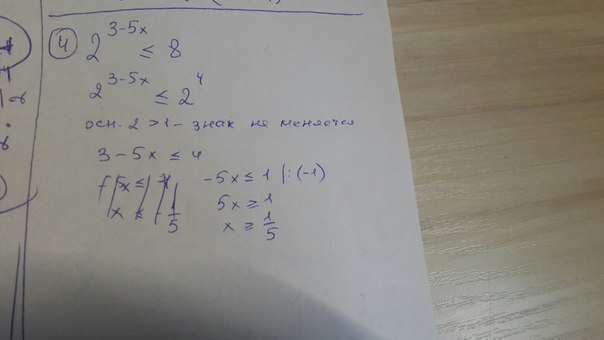 4
2^{3-5x} ≤ 8
2^{3-5x} ≤ 2^4
осн. 2 > 1 - знак не меняется
3 - 5x ≤ 4
-5x ≤ 1 |:(-1)
5x ≥ 1
x ≥ 1/5